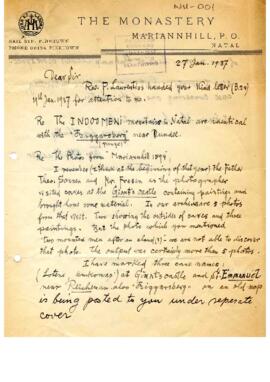 NU-001
THE MONASTERY
MARIANNHILL, P.O.
NATAL
RAIL STN. PINETOWN
PHONE 081124 PINETOWN
27 Jan. 1937
Dear Sir
Rev. P. Laurentius handed your kind letter (B.24)
11th Jan. 1937 for attention to me.
Re The INDOMENI mountains in Natal are identical
with the Biggarsberg near Dundee.
(ranges)
Re The Photos from Mariannhill 1894
I remember (I them at the beginning of that year) the Fathers
Thos. Borren and No. Freeis as the photographer
visited caves at the Giant's castle containing paintings and
brought home some material. In our archives are 3 photos
from that visit. Two showing the outsides of caves and three
paintings. But the photo which you mentioned
"two mounted men after an eland (?)" we are not able to discover
that photo. The output was certainly more than 3 photos.
I have marked three cave names
at Giants castle and pt Emmanuel
near also Biggarsberg on an old map
is being posted to you under seperate
cover